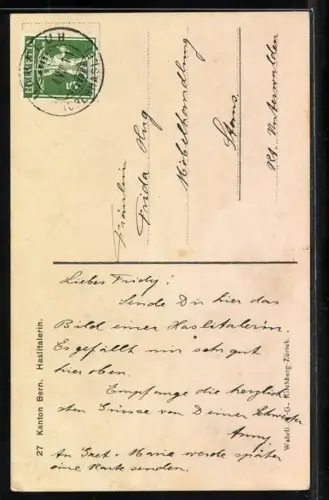 HELVETIA
5
Fräulein
Frida Hug
Möbelhandlung
Stans
Kt. Unterwalden
Liebes Fridy!
Sende Dir hier das
Bild einer Haslitalerin.
Es gefällt mir sehr gut
hier oben.
Empfange die herzlich-
sten Grüsse von Deiner Schwester
Anny.
An Gret-Marie werde später
eine Karte senden.
27 Kanton Bern. Haslitalerin.
Wehrli A.-G., Kilchberg-Zürich.